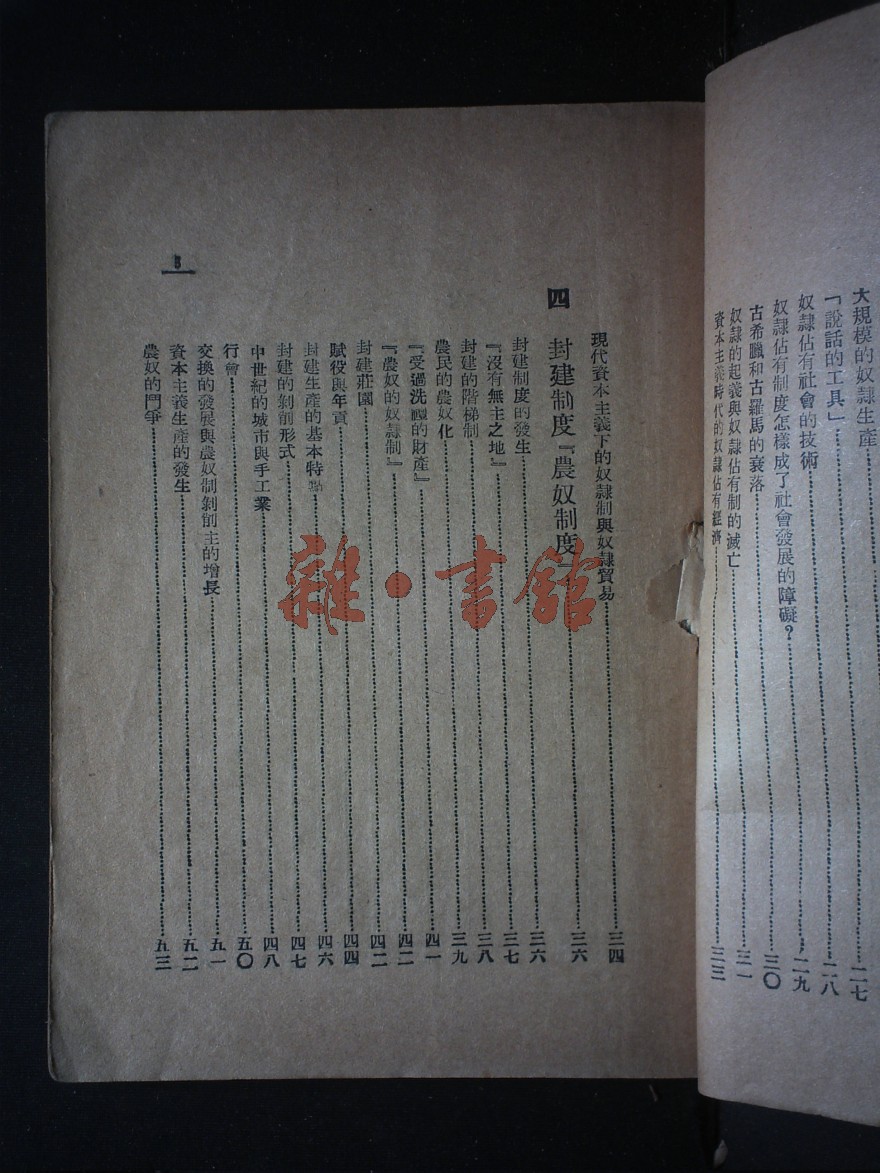 大規模的奴隸生產……二七
「說話的工具」……二八
奴隸佔有社會的技術……二九
奴隸佔有制度怎樣成了社會發展的障礙？……三〇
古希臘和古羅馬的衰落
奴隸的起義與奴隸佔有制的滅亡……三一
資本主義時代的奴隸佔有經濟……三三
現代資本主義下的奴隸制與奴隸貿易……三四
四 封建制度『農奴制度』……三六
封建制度的發生……三六
『沒有無主之地』……三七
封建的階梯制……三八
農民的農奴化……三九
『受過洗禮的財產』……四一
『農奴的奴隸制』……四二
封建莊園……四二
賦役與年貢……四四
封建生產的基本特點……四六
封建的剝削形式……四七
中世紀的城市與手工業……四八
行會……五〇
交換的發展與農奴制剝削主的增長……五一
資本主義生產的發生……五二
農奴的鬥爭……五三
雜·書館